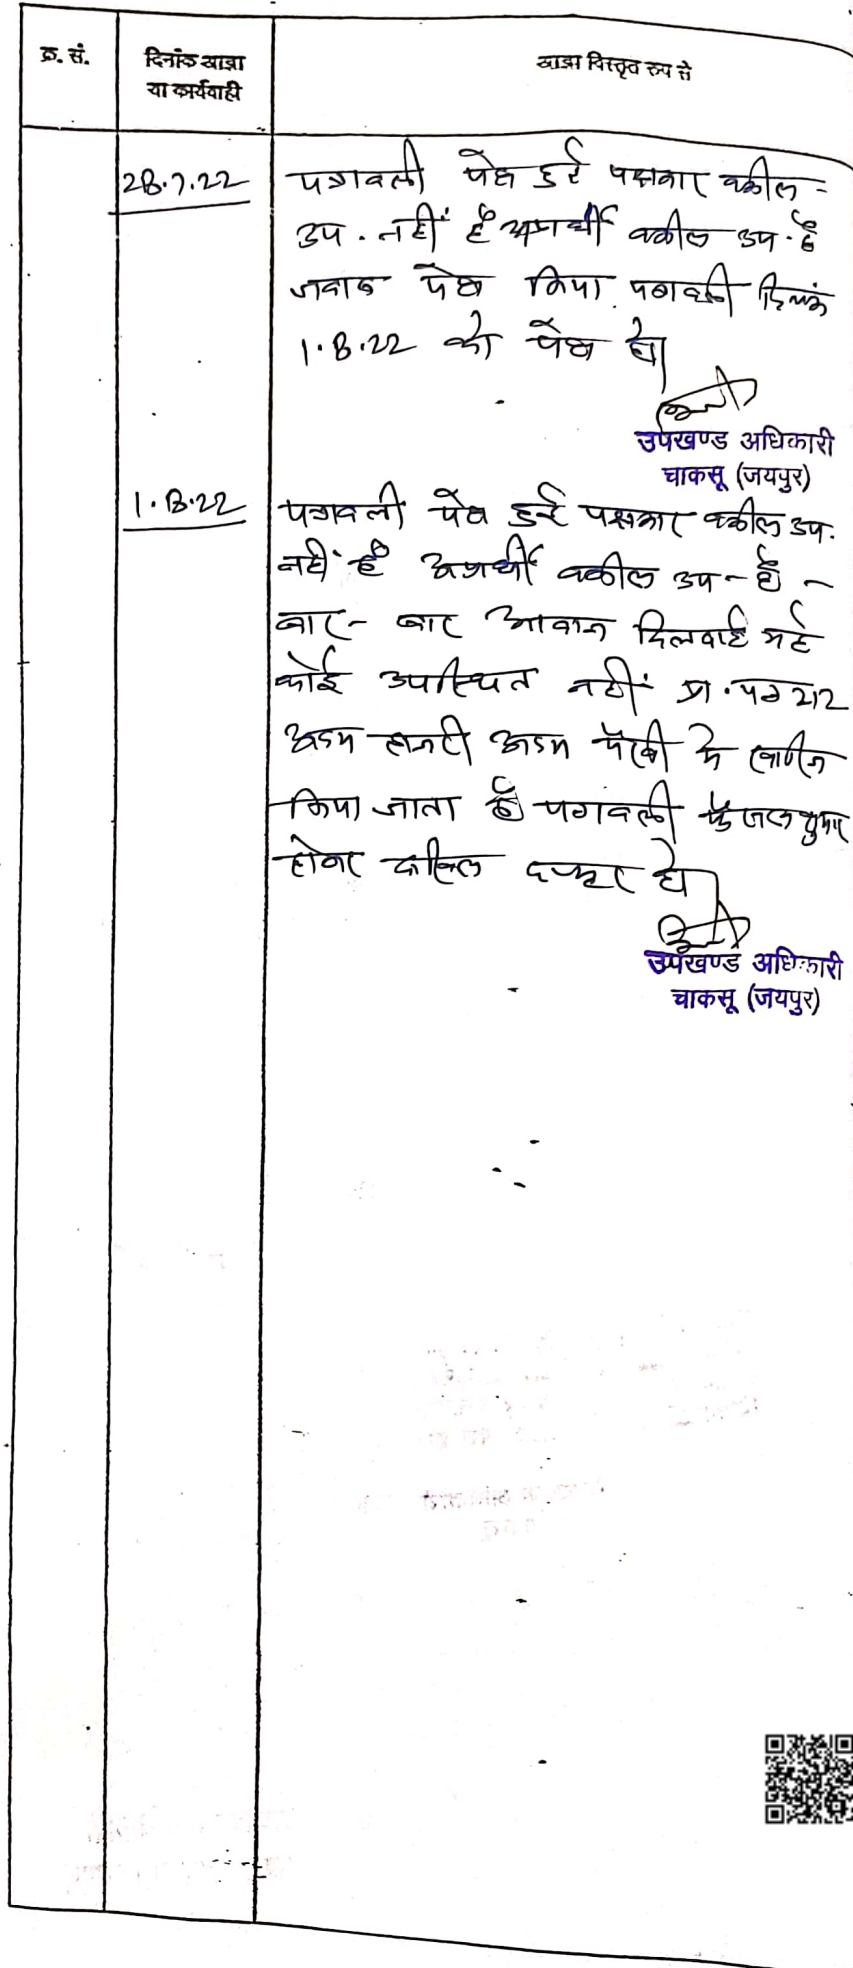 क्र. सं.
दिनांक आज्ञा
या कार्यवाही
आज्ञा विस्तृत रूप से
28.7.22
पत्रावली पेश हुई पक्षकार वकील
उप. नहीं है अप्रार्थी वकील उप. है
जवाब पेश किया पत्रावली दिनांक
1.8.22 को पेश हो
उपखण्ड अधिकारी
चाकसू (जयपुर)
1.8.22
पत्रावली पेश हुई पक्षकार वकील उप.
नहीं है अप्रार्थी वकील उप - है -
बार - बार आवाज दिलवाई गई
कोई उपस्थित नहीं प्र. पत्र 212
अदम हाजरी अदम पैरवी मे खारीज
किया जाता है पत्रावली फैजल शुमार
होकर दाखिल दफ्तर हो
उपखण्ड अधिकारी
चाकसू (जयपुर)